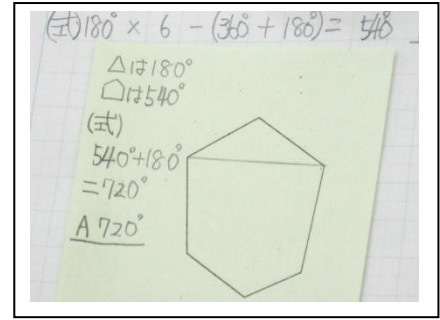 (式)180° × 6 − (360° + 180°) = 540°
△は180°
⌂は540°
(式)
540°+180°
=720°
A 720°